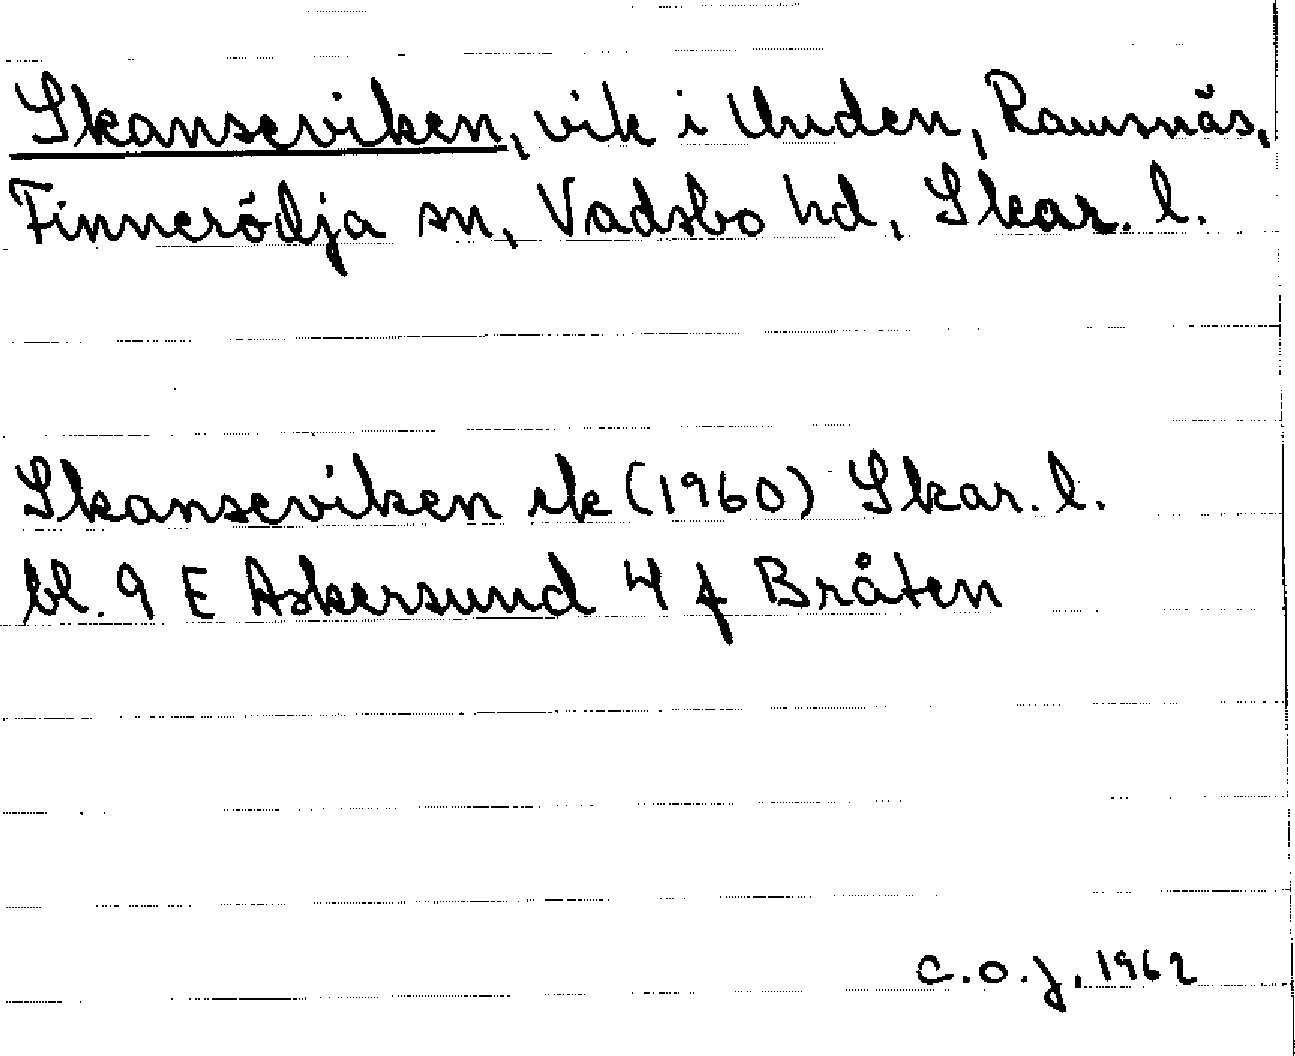 Skanseviken, vik i Unden, Ramsnäs,
Finnerödja sn, Vadsbo hd, Skar. l.
Skanseviken ek (1960) Skar. l.
bl. 9 E Askersund 4 f Bråten
C.O.J. 1962